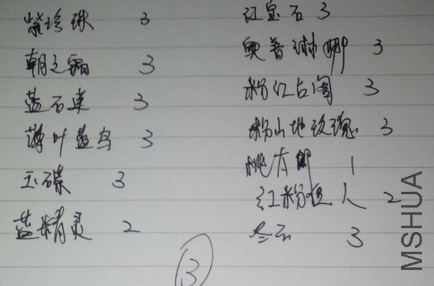 紫珍珠 3
朝之霜 3
蓝石莲 3
薄叶蓝鸟 3
玉碟 3
蓝精灵 2
红宝石 3
奥普琳娜 3
粉红台阁 3
粉山地玫瑰 3
桃太郎 1
红粉佳人 2
冬云 3
3
MSHUA